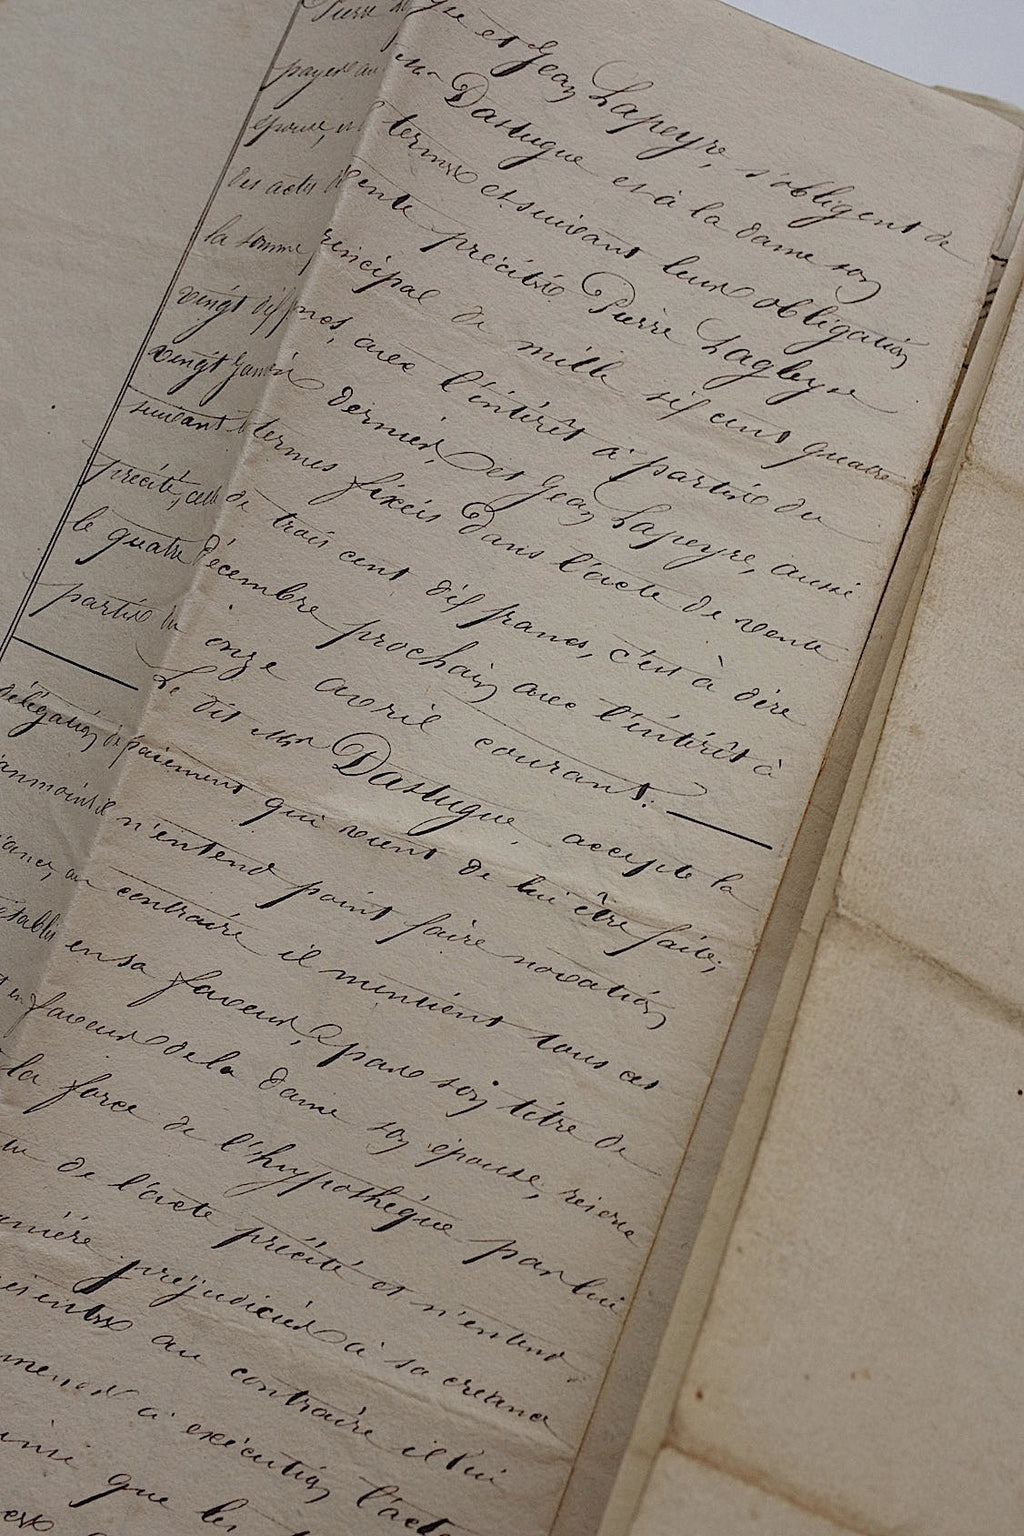 Pierre La gue et Jean Lapeyre, s'obligent de
payer au mr Dastugue et à la dame son
épouse, en termes et suivant leurs obligation
des actes de vente précités Pierre Lagleyse
la somme principal de mille six cens quatre
vingt dix francs, avec l'intérêt à partir du
vingt Janvier dernier, et Jean Lapeyre, aussi
suivant termes fixés dans l'acte de vente
précité, celle de trois cent dix francs, c'est à dire
le quatre Décembre prochain avec l'intérêt à
partir du onze avril courant.
Le dit Mr Dastugue, accepte la
délégation de paiement qui vient de lui être faite;
néanmoins il n'entend point faire novation
au contraire il maintient tous ces
établis en sa faveur, par son titre de
et en faveur de la dame son épouse, réserve
la force de l'hypothèque par lui
de l'acte précité et n'entend
manière préjudicier à sa créance
présentes au contraire il lui
à exécution l'acte
ainsi que les